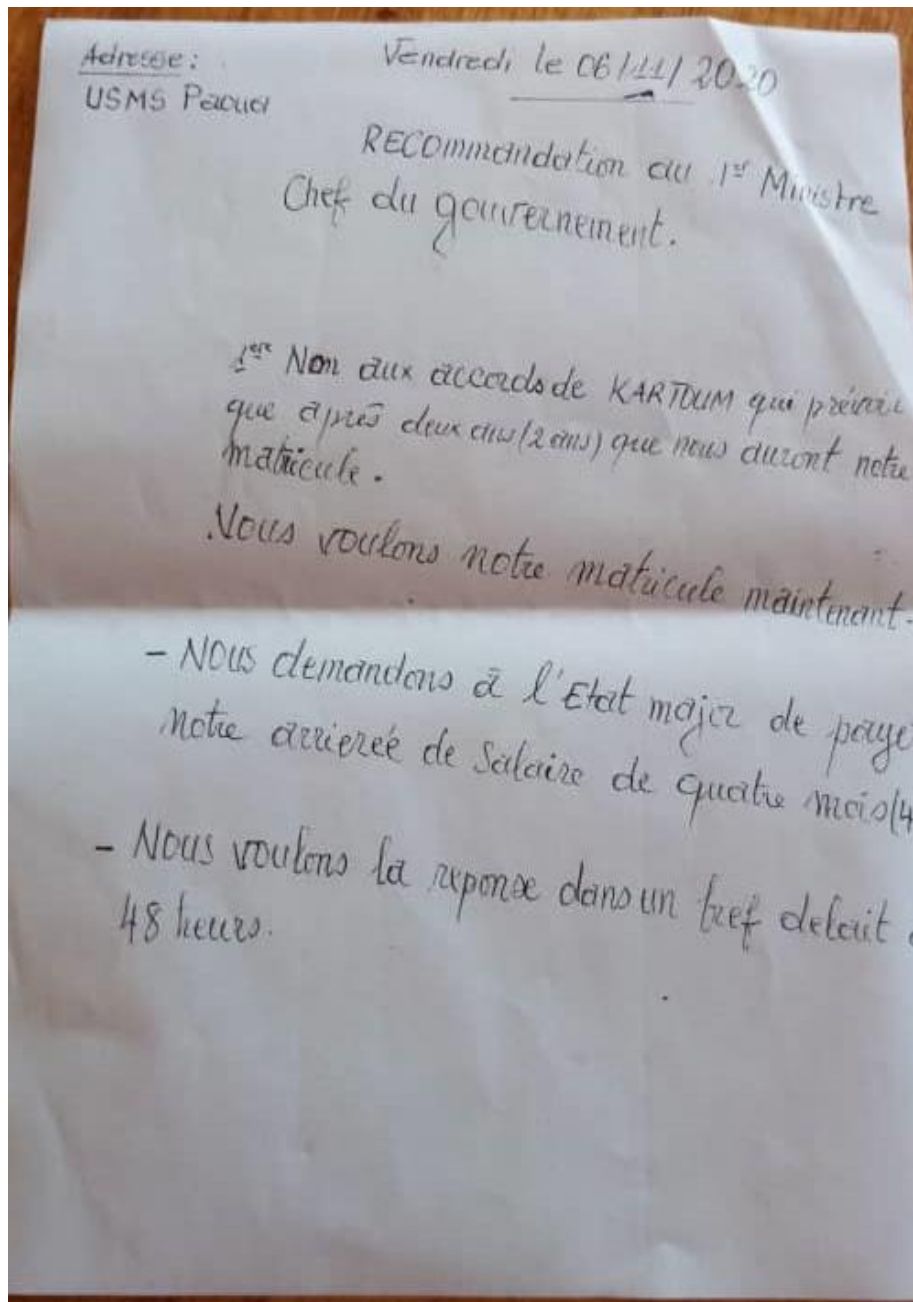 Adresse :
USMS Paoua
Vendredi le 06/11/2020
RECommandation au 1er Ministre
Chef du gouvernement.
1ere Non aux accords de KARTOUM qui prévoit
que après deux ans (2 ans) que nous auront notre
matricule.
Nous voulons notre matricule maintenant-
- NOUS demandons à l'Etat major de paye
notre arriereé de Salaire de quatre mois (4
- Nous voulons la reponse dans un bref delait
48 heurs.